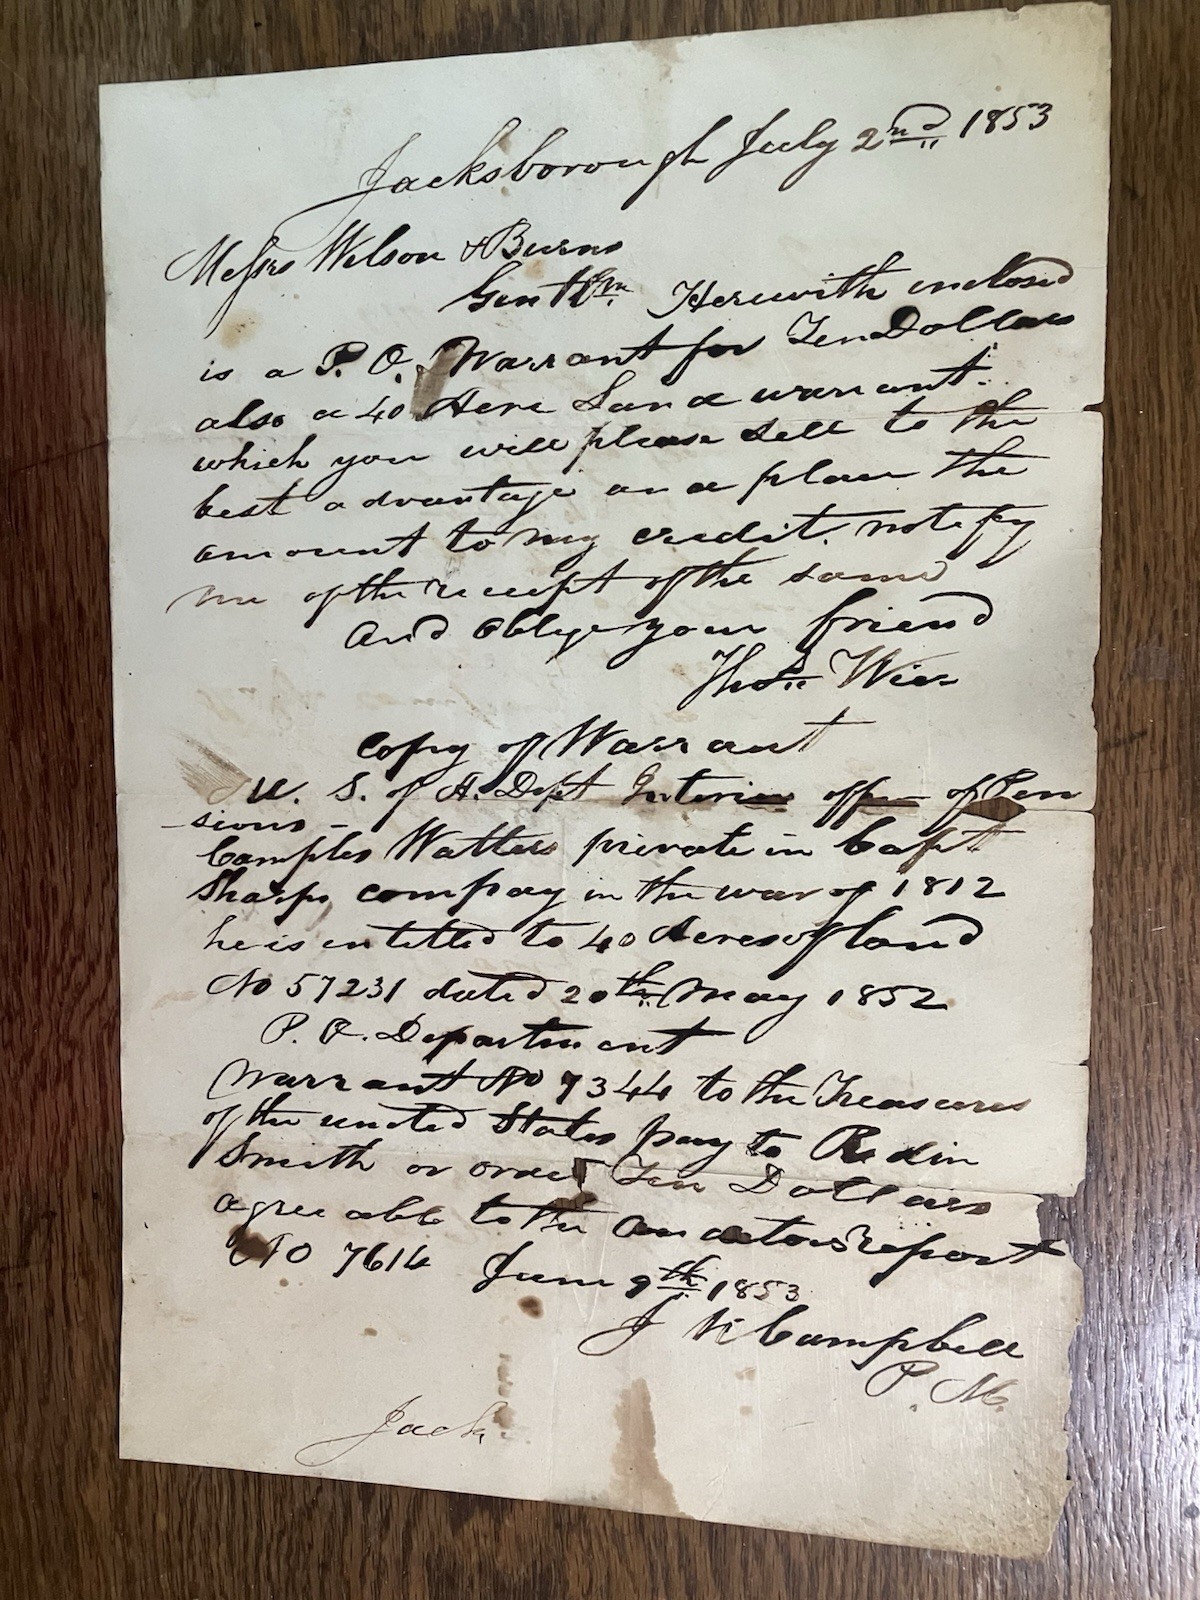 Jacksborough July 2nd 1853
Messrs Wilson & Burns
Gentlmn. Herewith enclosed
is a P. O. Warrant for Ten Dollars
also a 40 Acre Land warrant.
which you will please sell to the
best advantage and place the
amount to my credit. notify
me of the receipt of the same
and oblige your friend
Thos. Wier
copy of Warrant
U. S. of A. Dept Interior office of Pen
-sions-
Wattes private in Capt
Sharps compay in the war of 1812
he is entitled to 40 Acres of land
No 57231 dated 20th May 1852
P. O. Department
Warrant No 7344 to the Treasurer
of the united States pay to Redin
Smith or order Ten Dollars
agreeable to the report
No 7614 June 9th 1853
J Campbell
P. M.
Jack